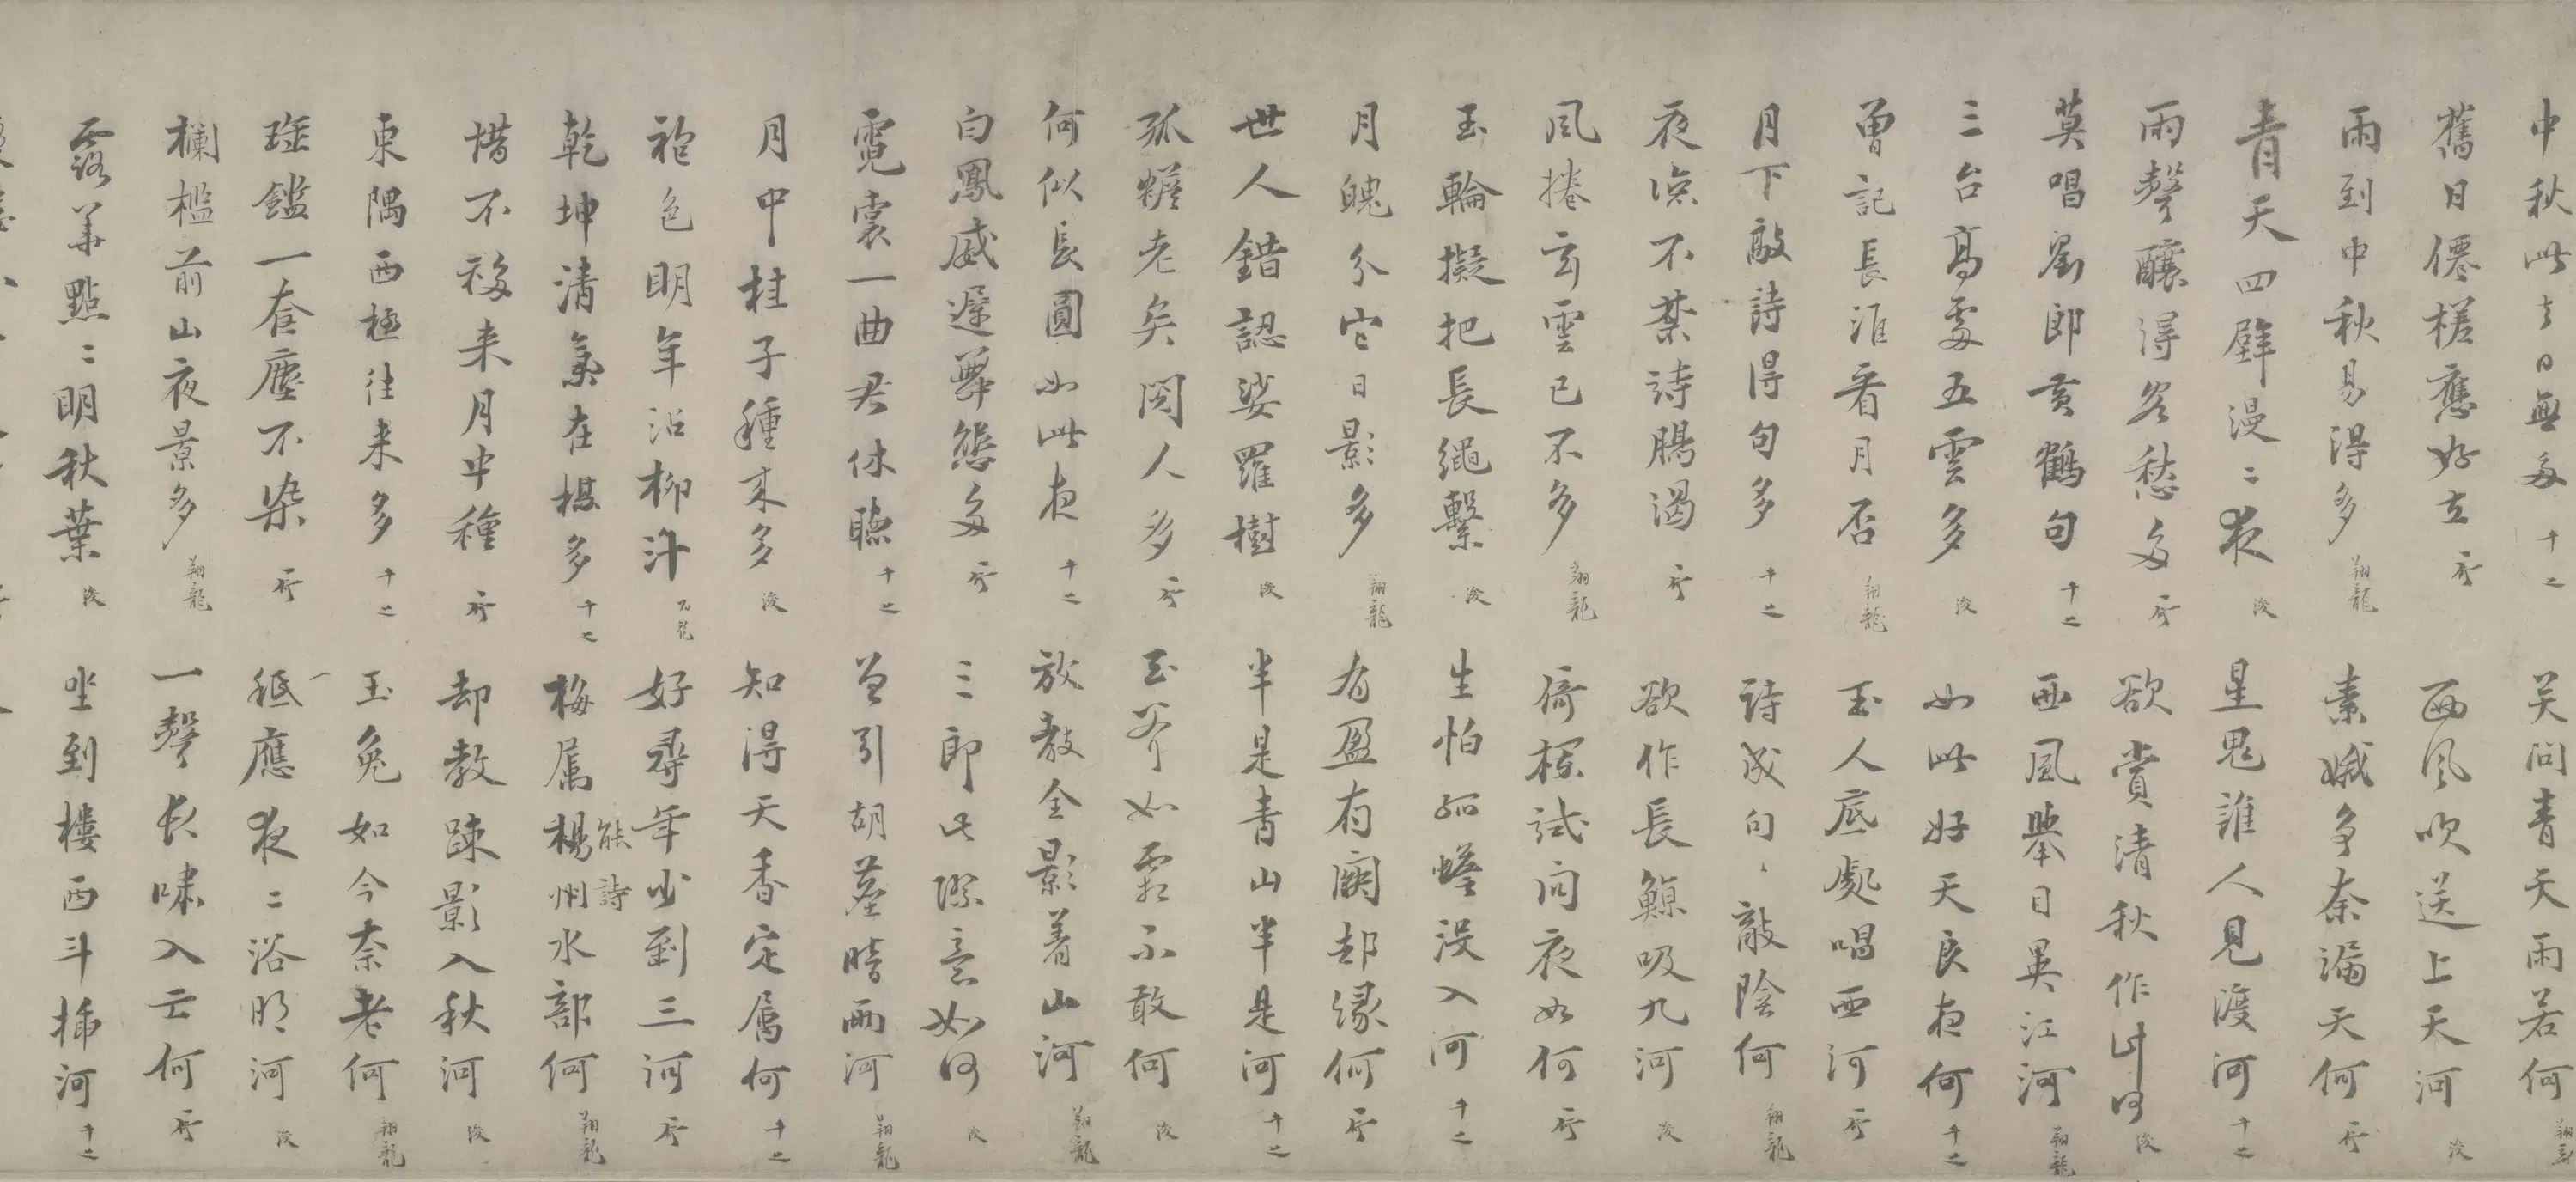 中秋此去日無多 十之 笑問青天雨若何 翔龍
舊日僊槎應好在 㪷 西風吹送上天河 浚
雨到中秋易得多 翔龍 素娥爭奈漏天何 㪷
青天四壁漫〻夜 浚 星鬼誰人見渡河 十之
雨聲釀得客愁多 欲賞清秋作此何 浚
莫唱劉郎黃鶴句 十之 西風舉目異江河 翔龍
三台高處五雲多 浚 如此好天良夜何 十之
曾記長淮看月否 翔龍 玉人底處唱西河
月下敲詩得句多 十之 詩成句〻敲陰何 翔龍
夜涼不禁詩腸渴 欲作長鯨吸九河 浚
風捲玄雲已不多 翔龍 倚樓試問夜如何
玉輪擬把長繩繫 浚 生怕孤蟾没入河 十之
月魄分它日影多 翔龍 有盈有闕却緣何
世人錯認娑羅樹 浚 半是青山半是河 十之
孤蟾老矣閱人多 玉斧如霜不敢何 浚
何似長圓如此夜 十之 放教全影著山河 翔龍
白鳳威遲舞態多 三郎此際意如何 浚
霓裳一曲君休聽 十之 曾引胡塵暗兩河 翔龍
月中桂子種來多 浚 知得天香定屬何 十之
袍色明年沾柳汁 翔龍 好尋年少到三河
乾坤清氣在楳多 十之 梅屬楊州水部何 翔龍
能詩
惜不移来月中種 却教踈影入秋河 浚
東隅西極往来多 十之 玉兔如今奈老何 翔龍
瑶鑑一奩塵不染 秪應夜〻浴明河 浚
欄檻前山夜景多 翔龍 一聲長嘯入云何
露華點〻明秋葉 浚 坐到樓西斗插河 十之